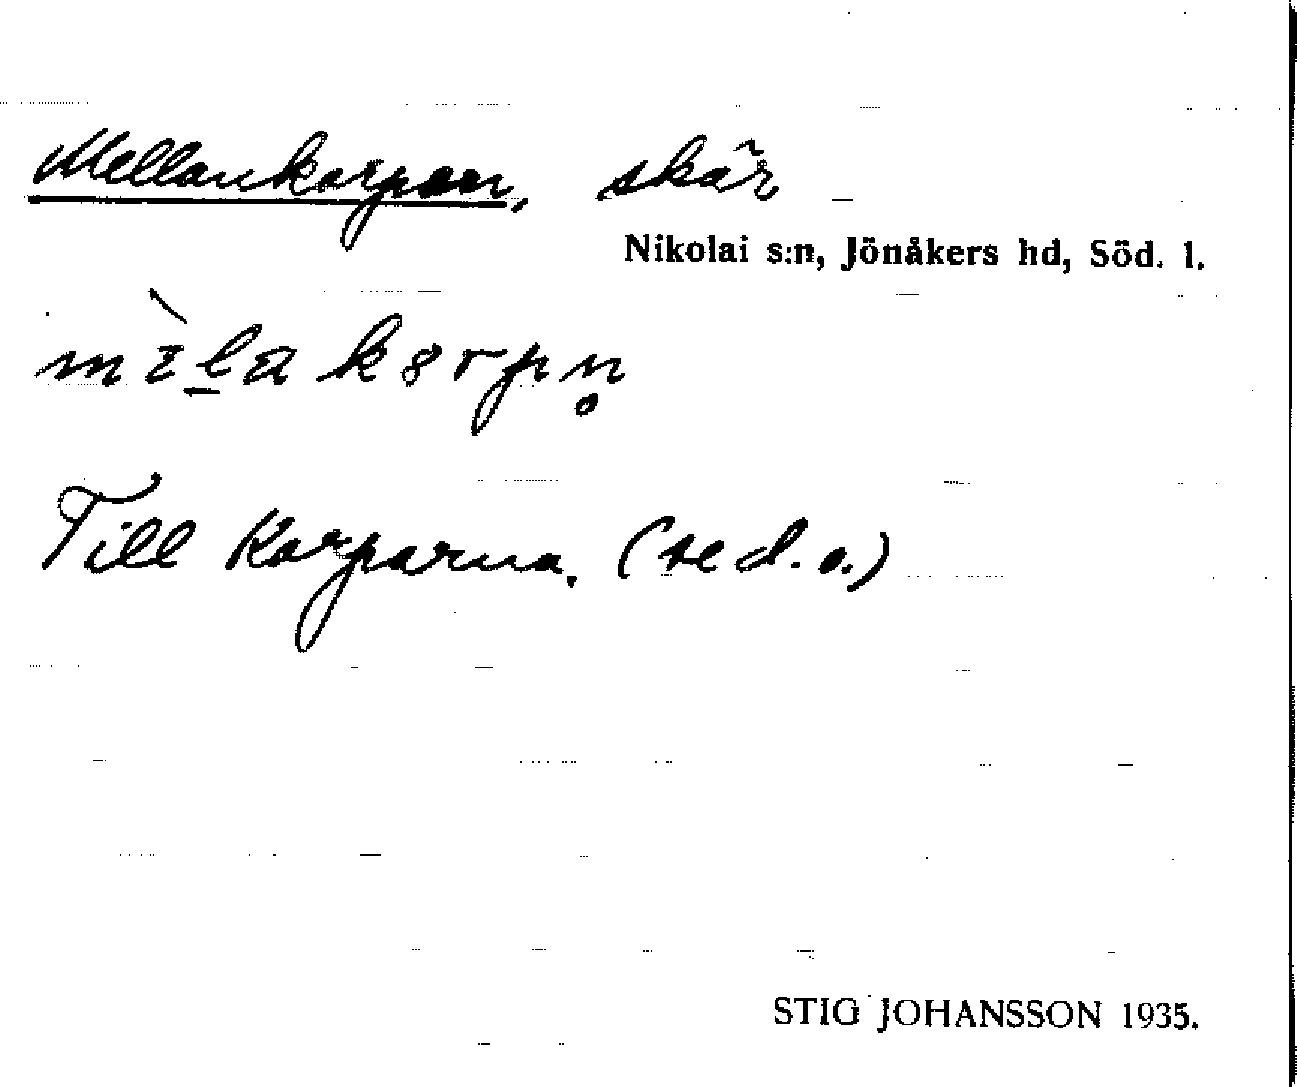 Mellankorpen, skär
Nikolai s:n, Jönåkers hd, Söd. l.
Till Korparna. (se d. o.)
STIG JOHANSSON 1935.